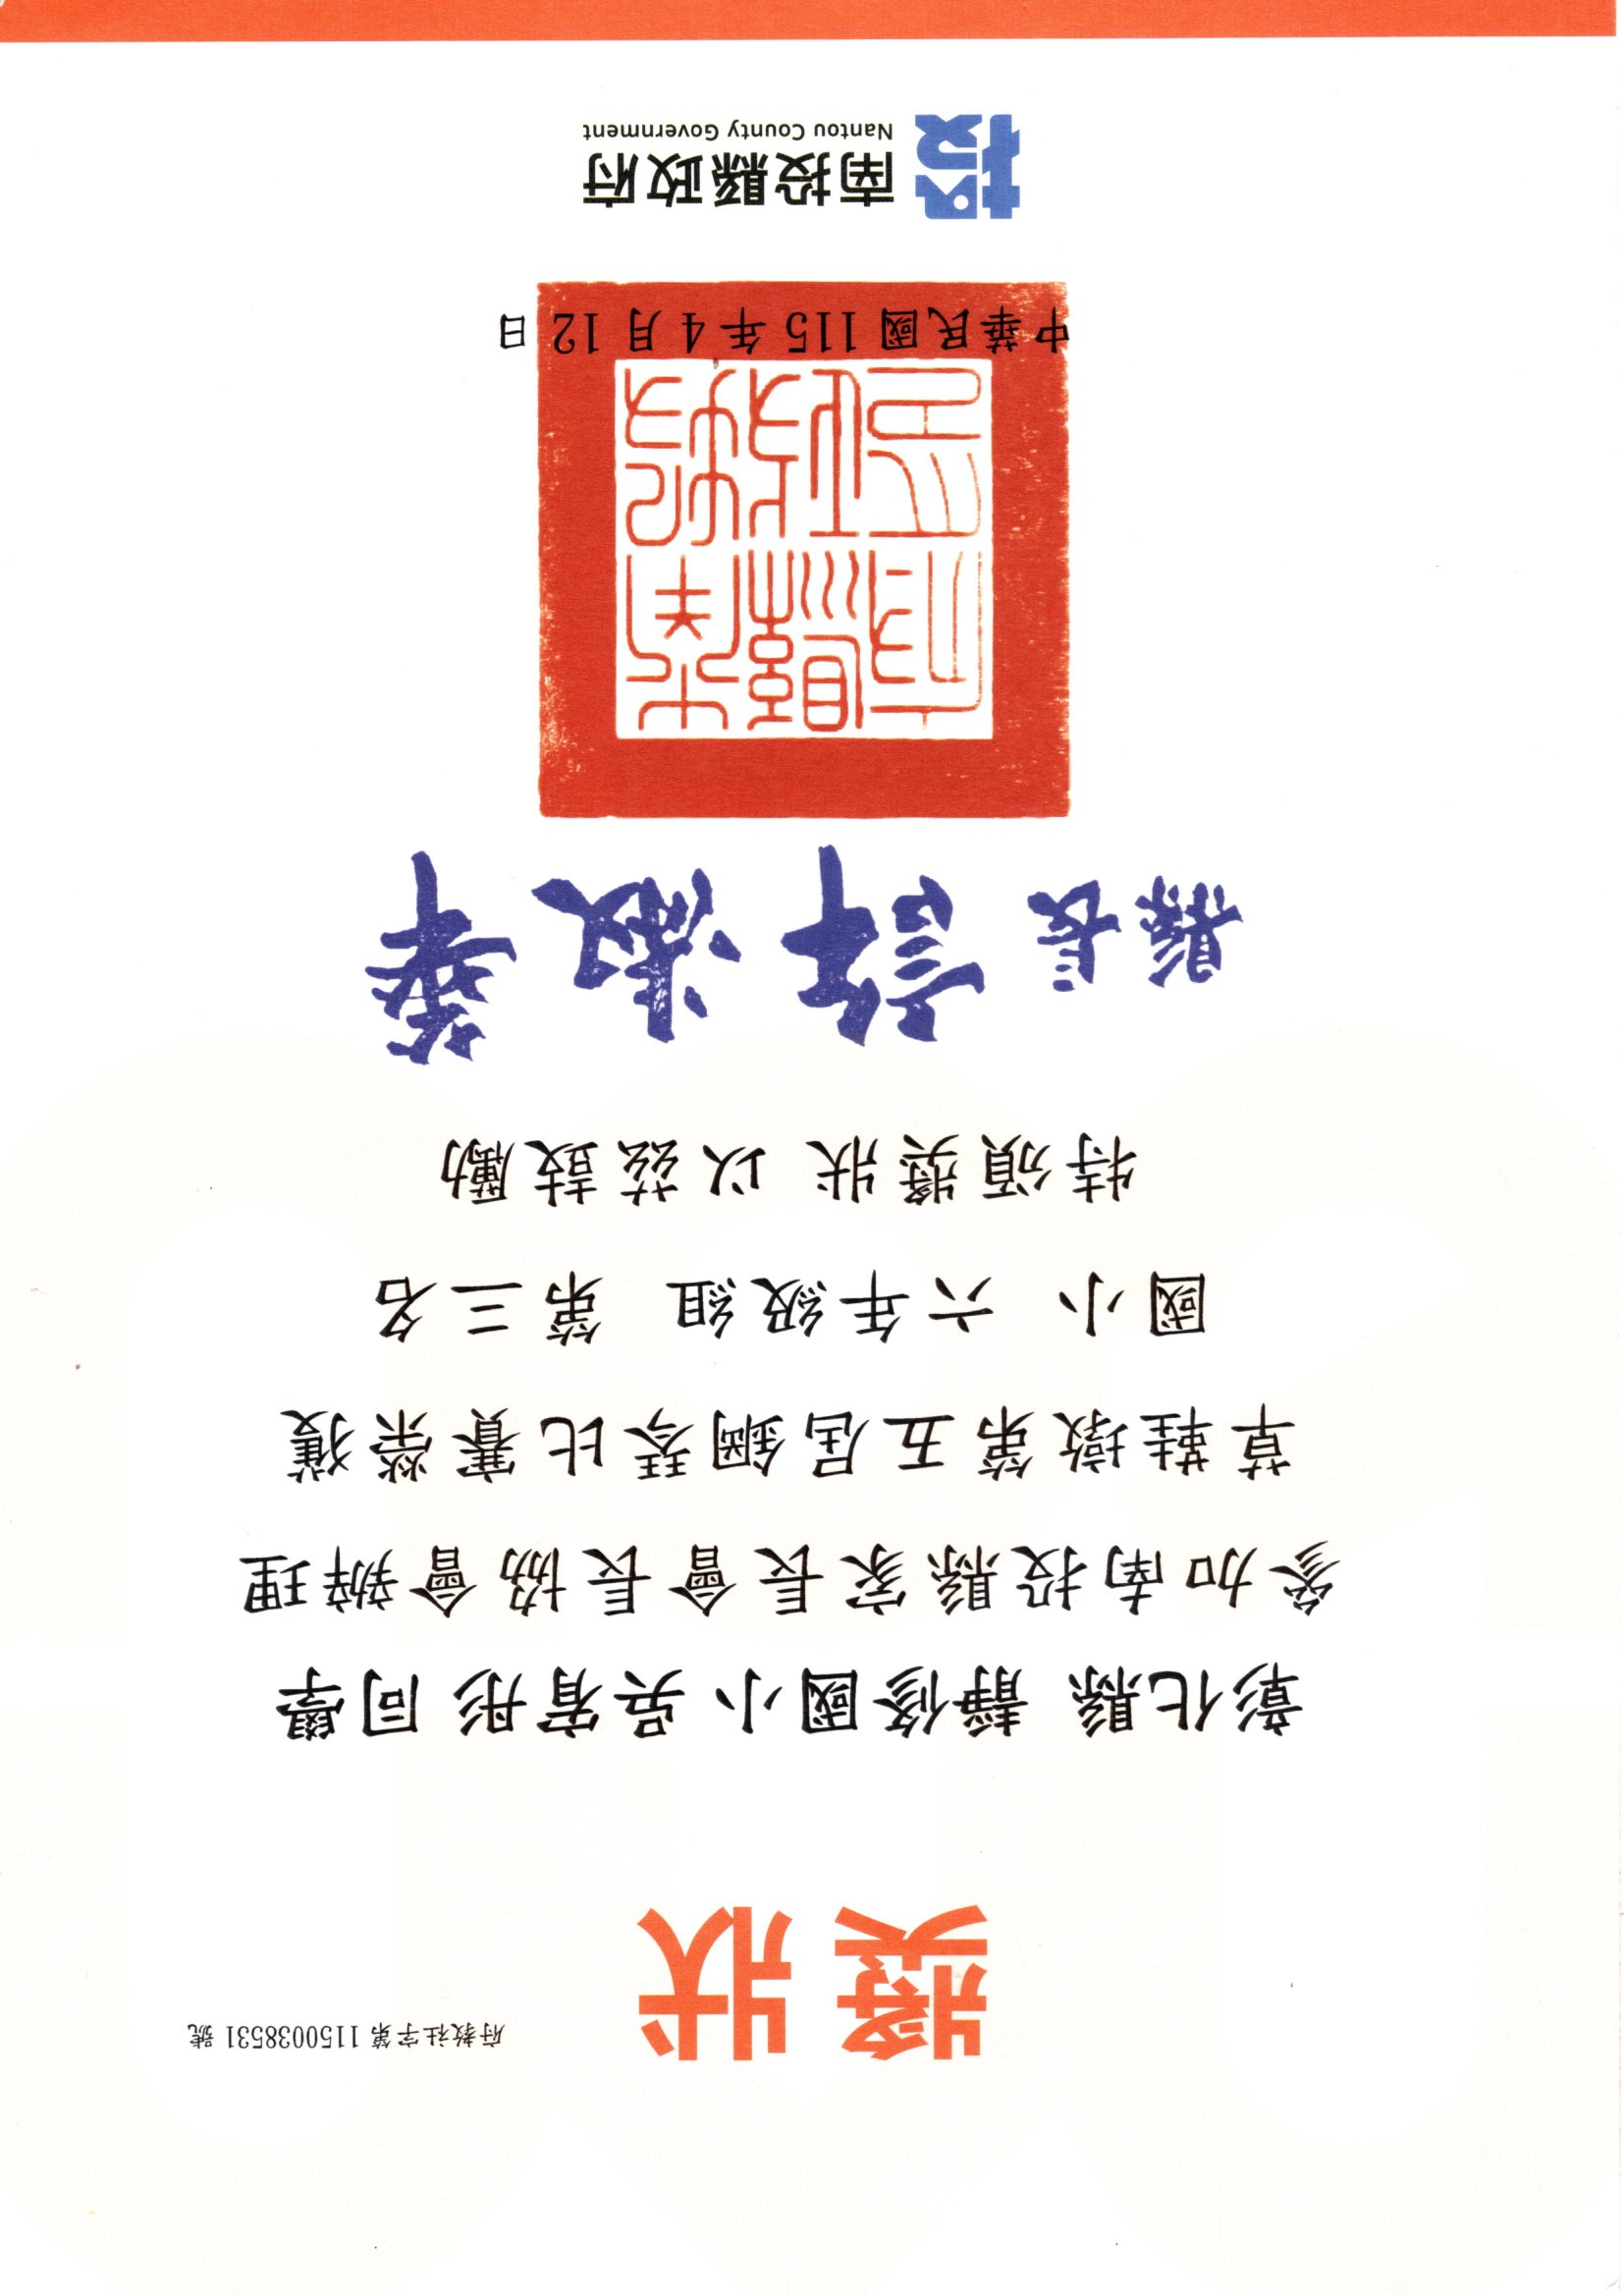 府教社字第 1150038531 號
獎狀
彰化縣 靜修國小 吳宥彤 同學
參加南投縣家長會長協會辦理
草鞋墩第五屆鋼琴比賽榮獲
國小 六年級組 第三名
特頒獎狀 以茲鼓勵
縣長 許淑華
中華民國 115 年 4 月 12 日
南投縣政府
Nantou County Government